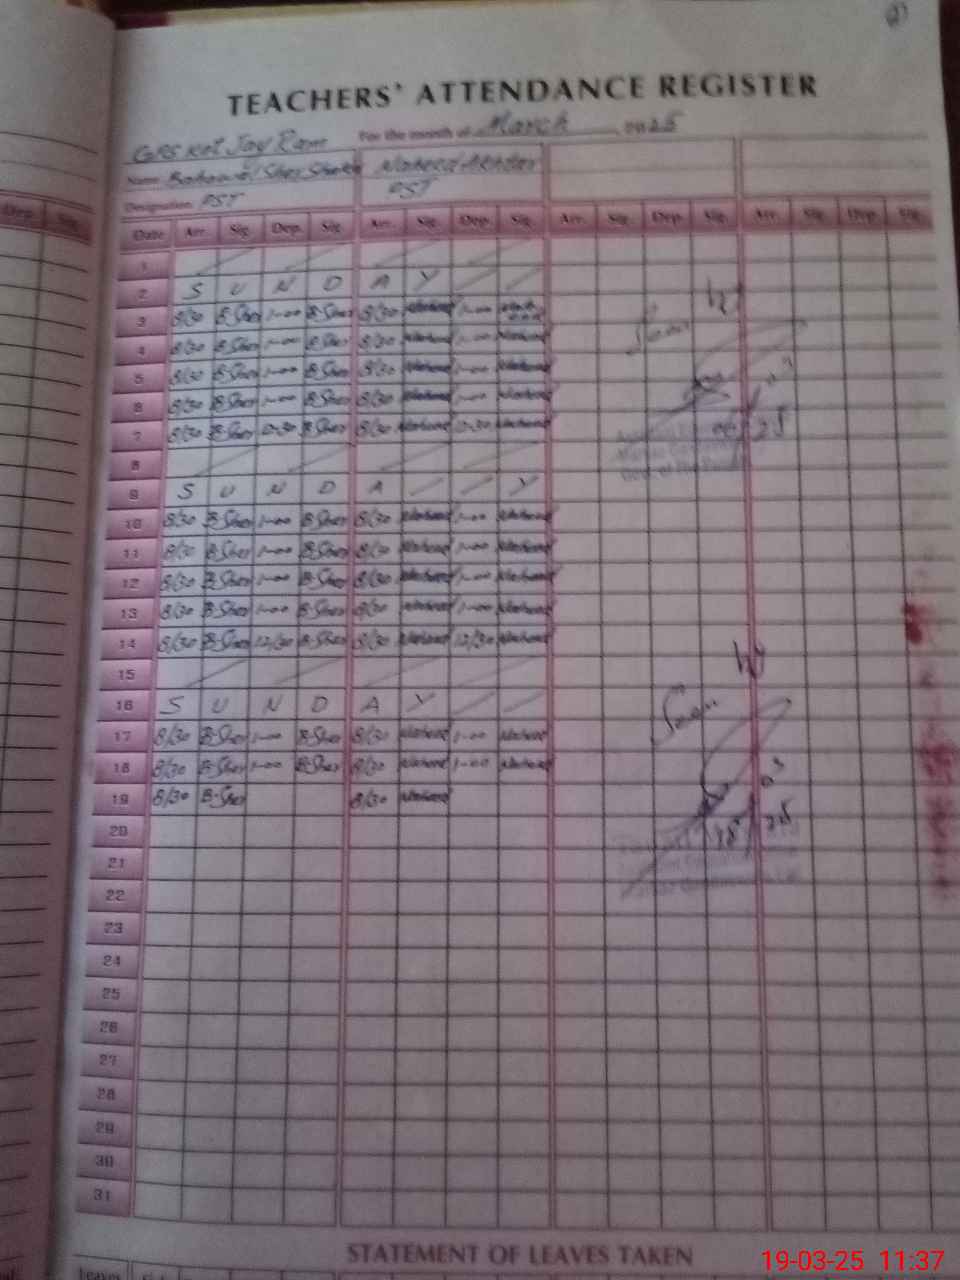 TEACHERS' ATTENDANCE REGISTER
For the month of March 2025
GPS Kot Jay Ram
Name Bahawal Sher Naheed Akhtar
Designation PST PST
Dep. Sig.
Date Arr. Sig. Dep. Sig. Arr. Sig. Dep. Sig. Arr. Sig. Dep. Sig. Arr. Sig. Dep. Sig.
1
2 S U N D A Y
3 8/30 B-Sher 1-00 B-Sher 8/30 Naheed 1-00
4 8/30 B-Sher 1-00 B-Sher 8/30 Naheed 1-00 Naheed
5 8/30 B-Sher 1-00 B-Sher 8/30 Naheed 1-00 Naheed
6 8/30 B-Sher 1-00 B-Sher 8/30 Naheed 1-00 Naheed
7 8/30 B-Sher 12-30 B-Sher 8/30 Naheed 12-30 Naheed
8
9 S U N D A Y
10 8/30 B-Sher 1-00 B-Sher 8/30 Naheed 1-00 Naheed
11 8/30 B-Sher 1-00 B-Sher 8/30 Naheed 1-00 Naheed
12 8/30 B-Sher 1-00 B-Sher 8/30 Naheed 1-00 Naheed
13 8/30 B-Sher 1-00 B-Sher 8/30 Naheed 1-00 Naheed
14 8/30 B-Sher 12/30 B-Sher 8/30 Naheed 12/30 Naheed
15
16 S U N D A Y
17 8/30 B-Sher 1-00 B-Sher 8/30 Naheed 1-00 Naheed
18 8/30 B-Sher 1-00 B-Sher 8/30 Naheed 1-00 Naheed
19 8/30 B-Sher 8/30 Naheed
20
21
22
23
24
25
26
27
28
29
30
31
Seen
Seen
STATEMENT OF LEAVES TAKEN
Leaves
19-03-25 11:37